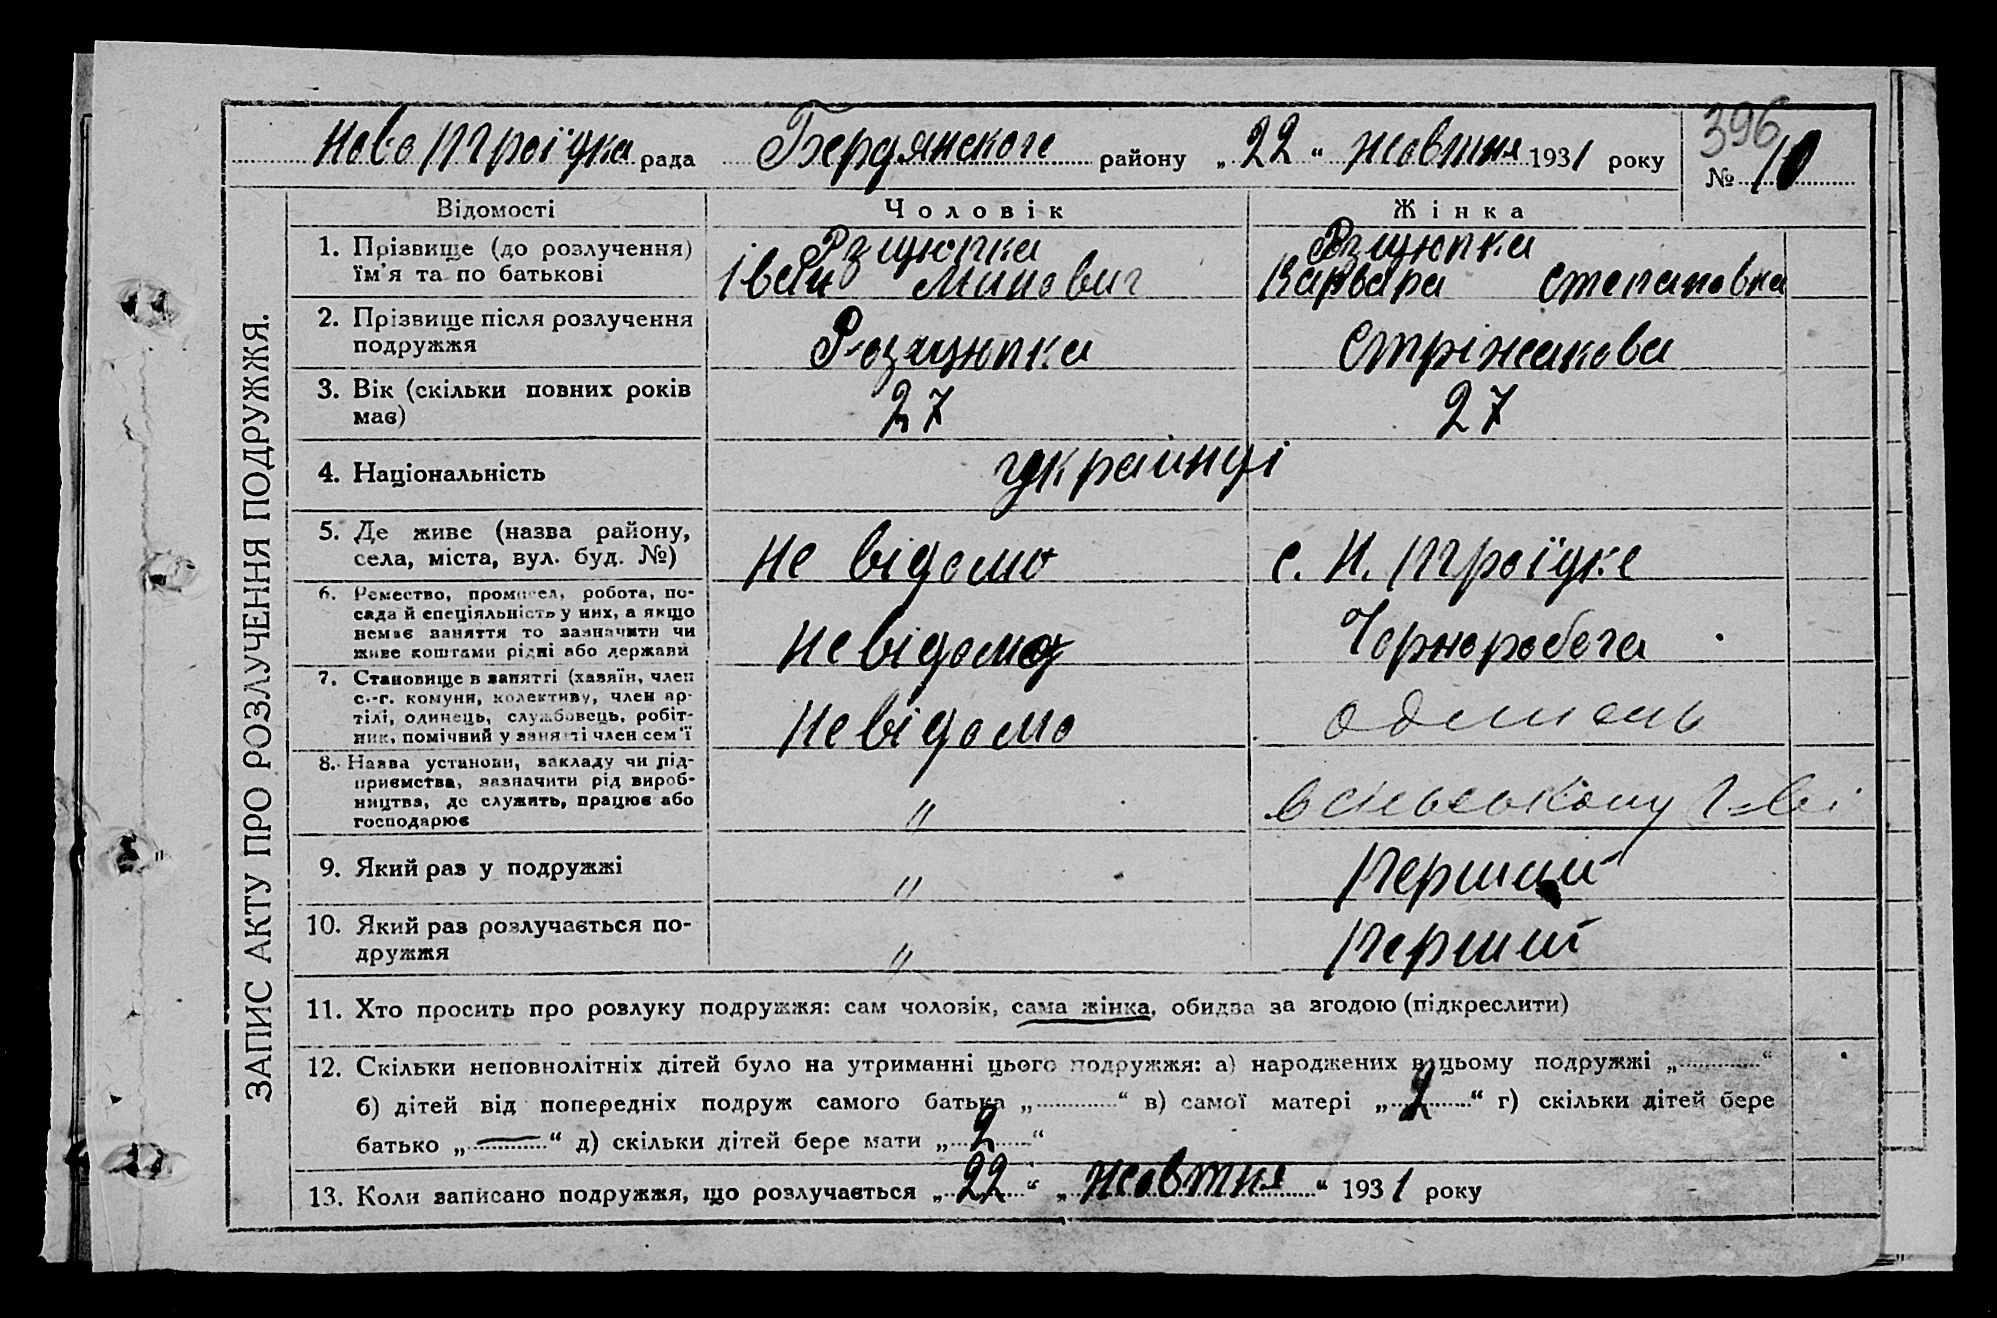 396
Ново Троїцка рада Бердянского району „22“ жовтня 1931 року № 10
ЗАПИС АКТУ ПРО РОЗЛУЧЕННЯ ПОДРУЖЖЯ.
Відомості Чоловік Жінка
1. Прізвище (до розлучення) їм’я та по батькові
Рзцюпка
Іван Минович
Рзцюпка
Варвара Степановна
2. Прізвище після розлучення подружжя
Розцюпка
Стріжакова
3. Вік (скільки повних років має)
27
27
4. Національність
українці
5. Де живе (назва району, села, міста, вул. буд. №)
не відомо
с. Н. Троїцке
6. Ремество, промисел, робота, посада й спеціяльність у них, а якщо немає заняття то зазначити чи живе коштами рідні або держави
невідомо
Чорноробоча
7. Становище в занятті (хазяїн, член с.-г. комуни, колективу, член артілі, одинець, службовець, робітник, помічний у занятті член сем’ї
невідомо
одинець
8. Назва установи, закладу чи підприємства, зазначити рід виробництва, де служить, працює або господарює
"
в сільському г-ві
9. Який раз у подружжі
"
Перший
10. Який раз розлучається подружжя
"
Перший
11. Хто просить про розлуку подружжя: сам чоловік, сама жінка, обидва за згодою (підкреслити)
12. Скільки неповнолітніх дітей було на утриманні цього подружжя: а) народжених в цьому подружжі „ “
б) дітей від попередніх подруж самого батька „ “ в) самої матері „2“ г) скільки дітей бере
батько „—“ д) скільки дітей бере мати „2“
13. Коли записано подружжя, що розлучається „22“ „жовтня“ 1931 року